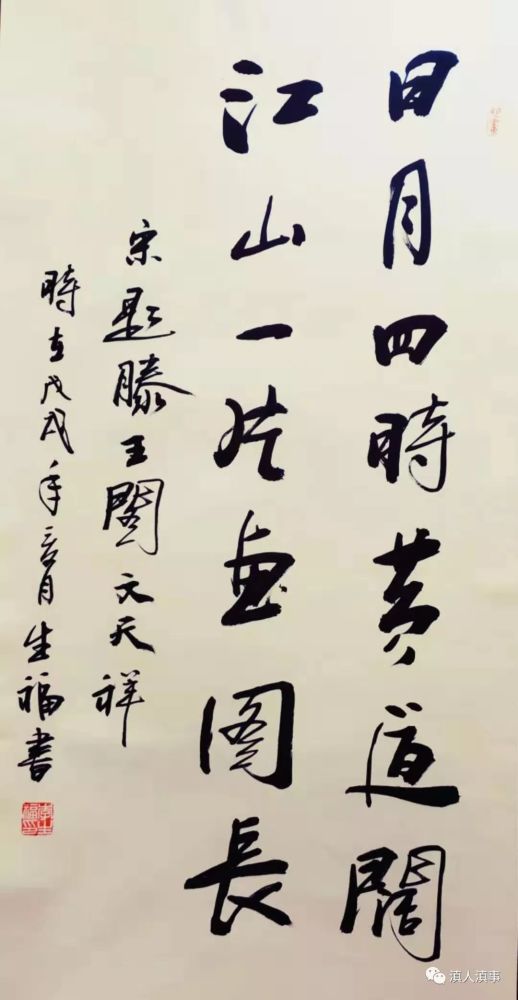 日月四時黄道闊
江山一片畫圖長
宋 題滕王閣 文天祥
時在戊戌年 月生福書
滇人滇事